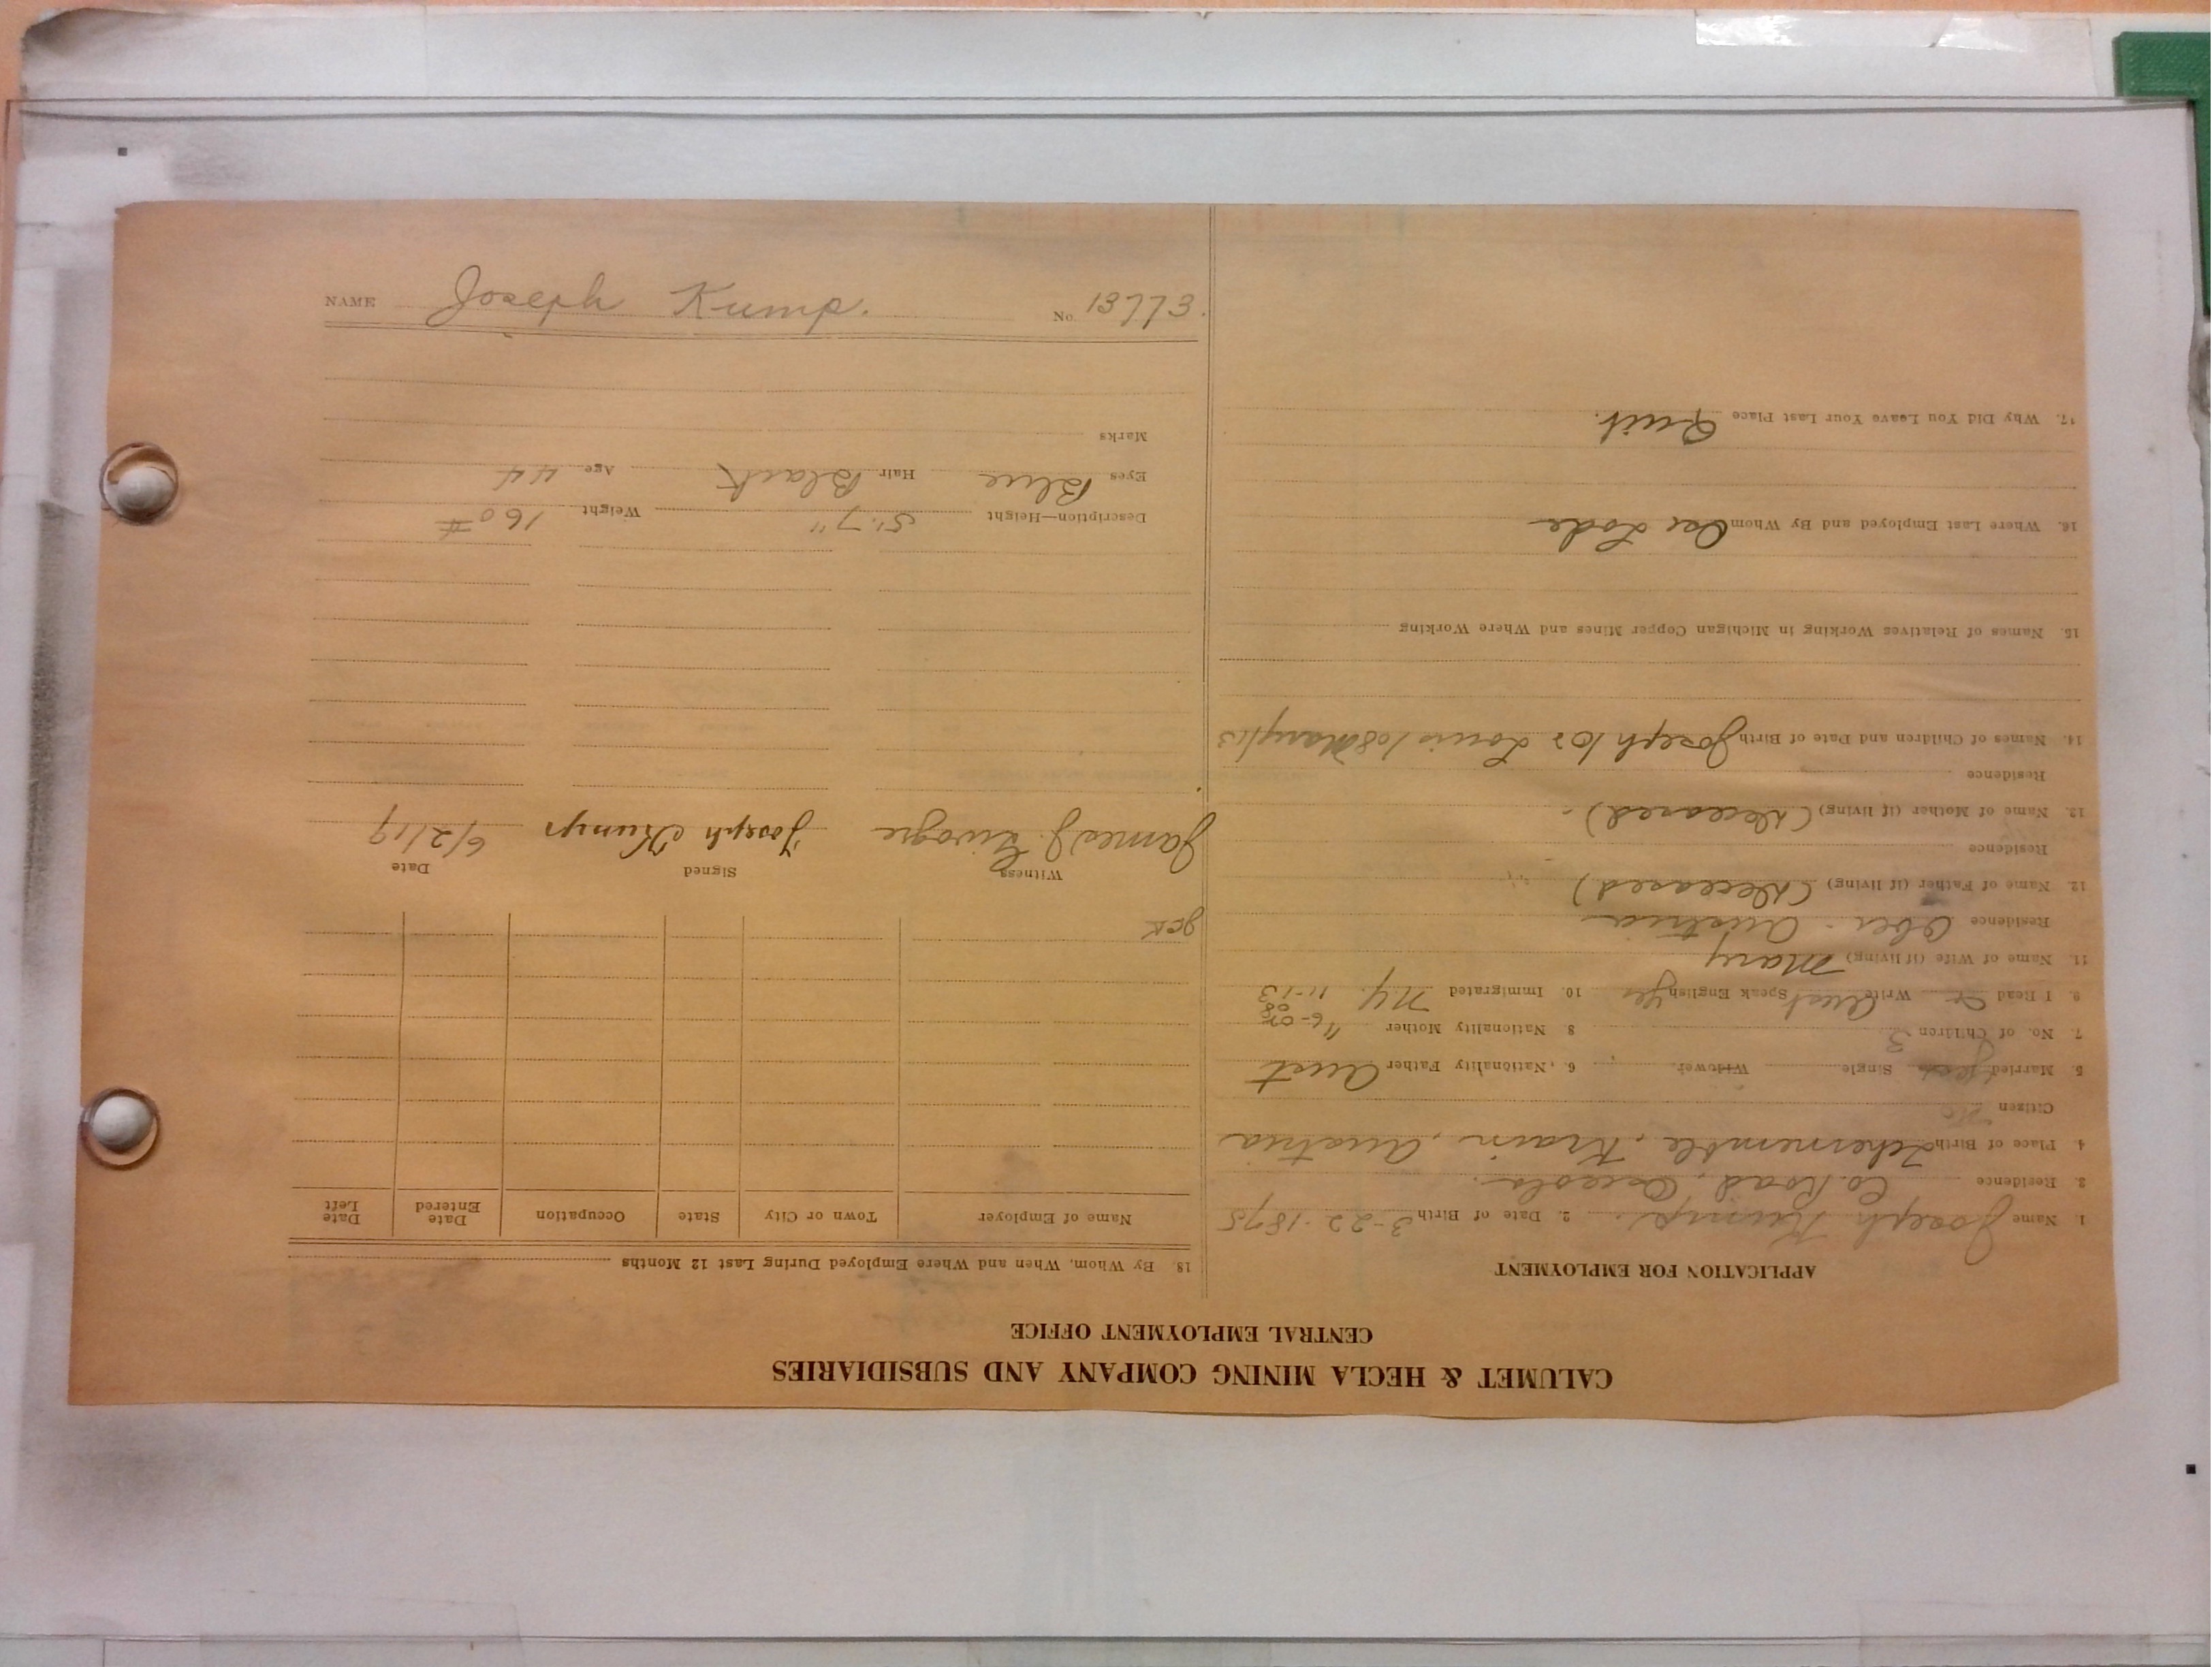 CALUMET & HECLA MINING COMPANY AND SUBSIDIARIES
CENTRAL EMPLOYMENT OFFICE
APPLICATION FOR EMPLOYMENT
1. Name Joseph Kump. 2. Date of Birth 3-22-1875
3. Residence Co. Road, Osceola.
4. Place of Birth Tchernemble, Krain, Austria
Citizen No
5. Married yes Single Widower 6. Nationality Father Aust
7. No. of Children 3 8 Nationality Mother "
9. I Read Write Aust Speak English Yes 10. Immigrated N.Y. 11-13
11. Name of Wife (if living) Mary
Residence Ober- Austria
12. Name of Father (if living) (Deceased)
Residence
13. Name of Mother (if living) (Deceased)
Residence
14. Names of Children and Date of Birth Joseph /05 Louis /08 Mary /13
15. Names of Relatives Working in Michigan Copper Mines and Where Working
16. Where Last Employed and By Whom Osc Lode
17. Why Did You Leave Your Last Place Quit.
18. By Whom, When and Where Employed During Last 12 Months
Name of Employer Town or City State Occupation Date Entered Date Left
Witness Signed Date
James J. Joseph Kump 6/2/19
Description—Height 5'.7" Weight 160#
Eyes Blue Hair Black Age 44
Marks
NAME Joseph Kump. No. 13773.